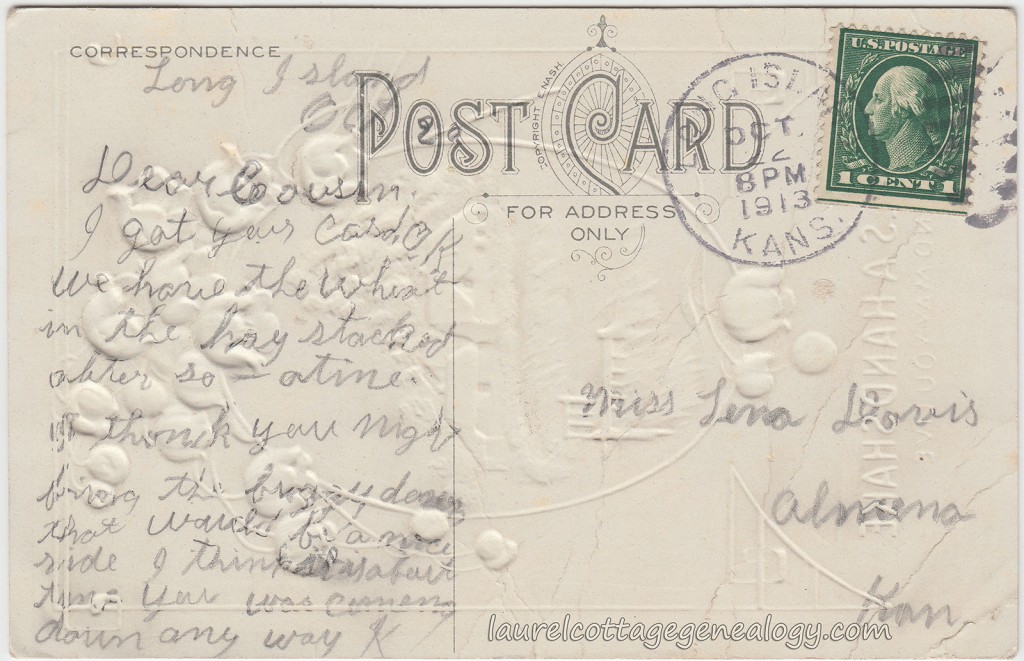 CORRESPONDENCE
POST CARD
COPYRIGHT E NASH
FOR ADDRESS
ONLY
U.S. POSTAGE
1 CENT 1
OCT.
22
8 PM
1913
KANS.
Long Island
22
Dear Cousin
I got your card, OK
We have the wheat
in the hay stacked
after so a time.
I thonck you might
bring the buggy down
that would be a nice
ride I think it is about
time you was comeng
down any way K
Miss Lena Davis
Almena
Kan
laurelcottagegenealogy.com